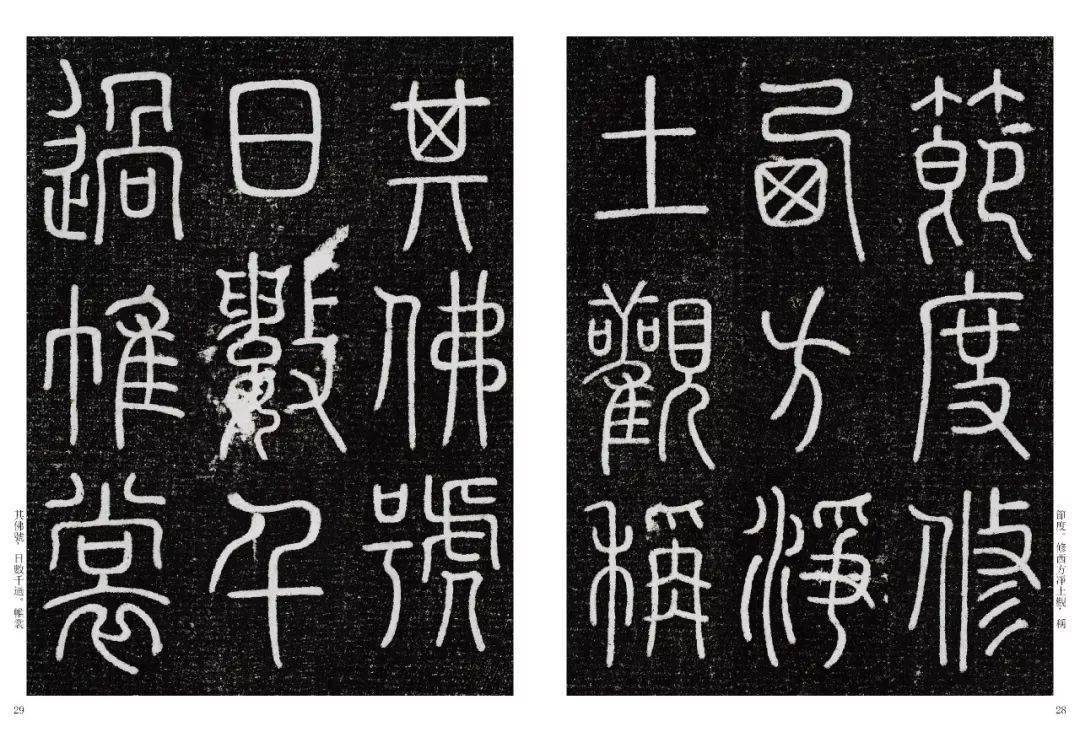 節度修
西方淨
土觀稱
節度。修西方淨土觀，稱
28
其佛號
日數千
過帷裳
其佛號，日數千過。帷裳
29